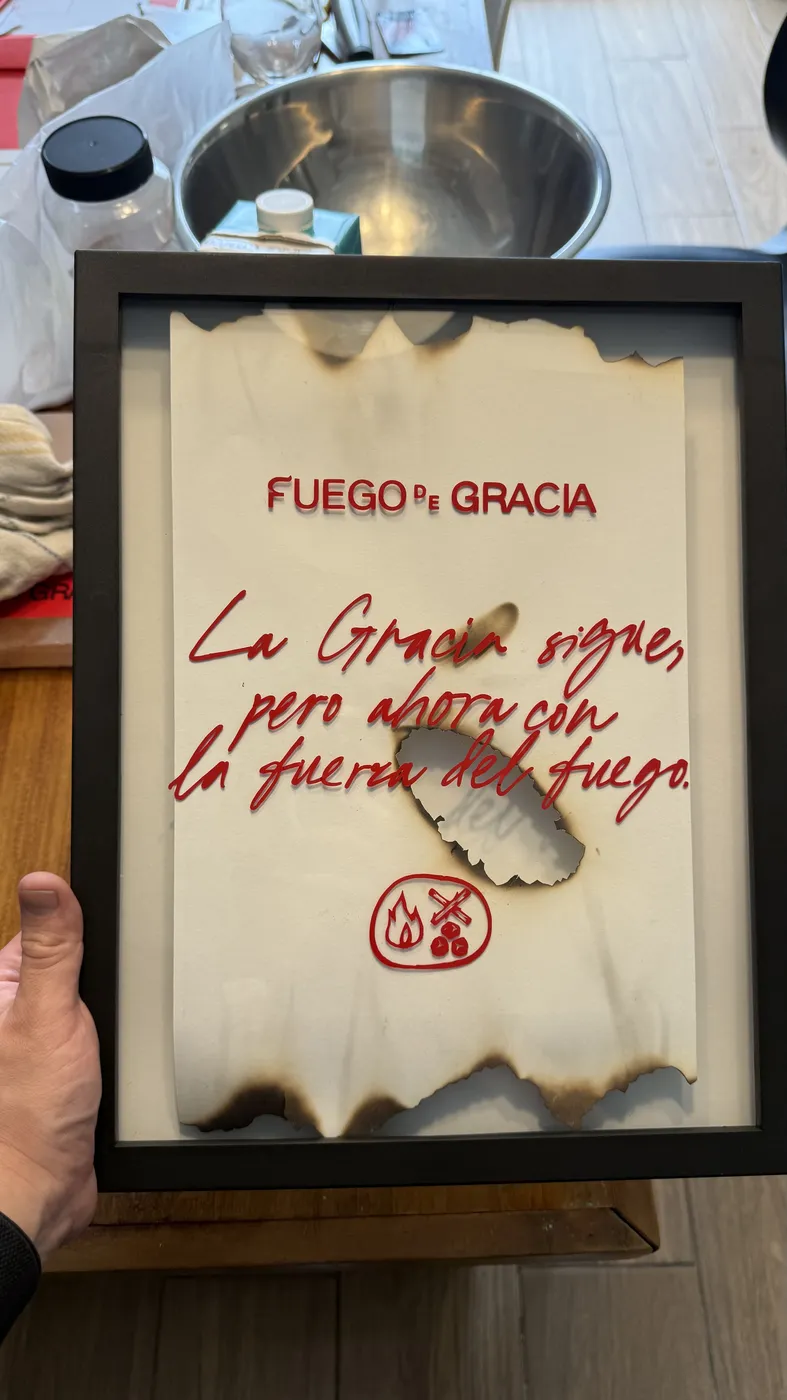 FUEGO DE GRACIA
La Gracia sigue,
pero ahora con
la fuerza del fuego.